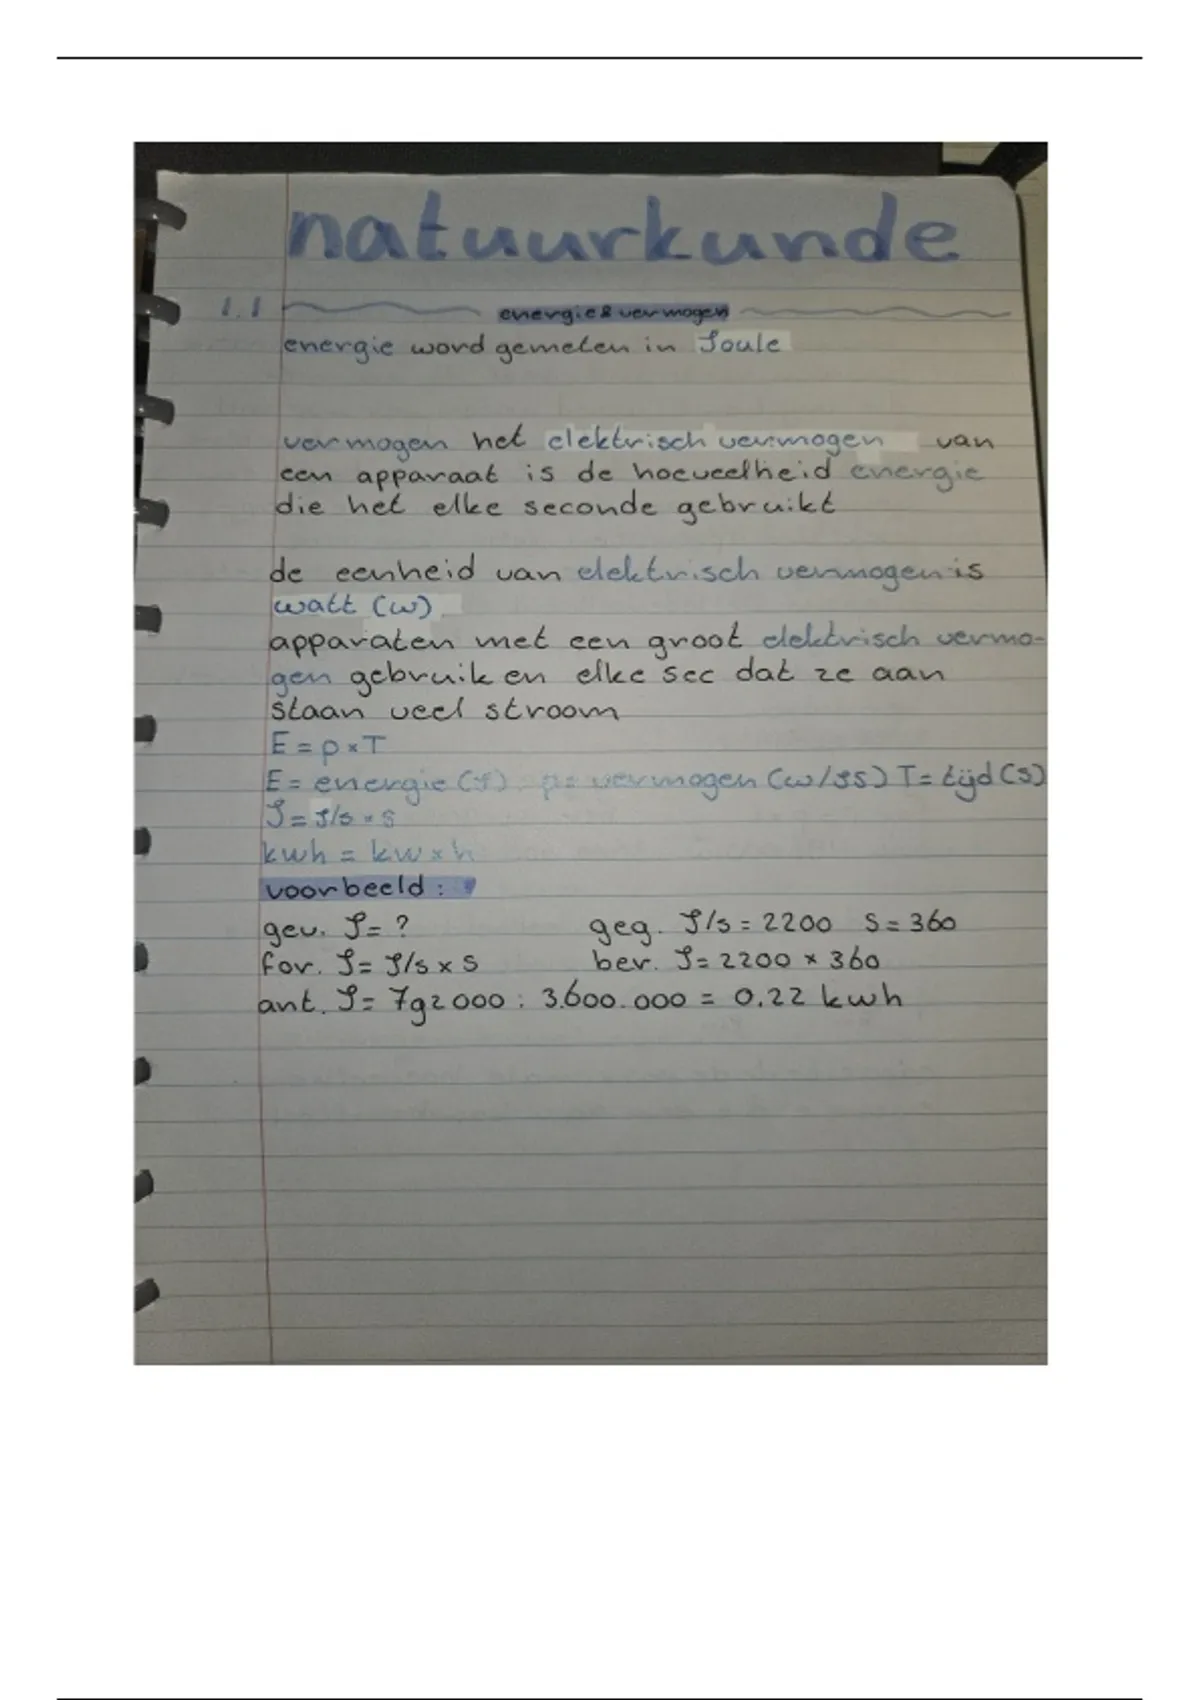 natuurkunde
1.1 energie & vermogen
energie word gemeten in Joule
vermogen het elektrisch vermogen van
een apparaat is de hoeveelheid energie
die het elke seconde gebruikt
de eenheid van elektrisch vermogen is
watt (w)
apparaten met een groot elektrisch vermo-
gen gebruiken elke sec dat ze aan
staan veel stroom
E = p × T
E = energie (J) p = vermogen (w/JS) T = tijd (S)
J = J/s × s
kwh = kw × h
voorbeeld :
gev. J = ? geg. J/s = 2200 S = 360
for. J = J/s × S ber. J = 2200 × 360
ant. J = 792000 : 3.600.000 = 0.22 kwh